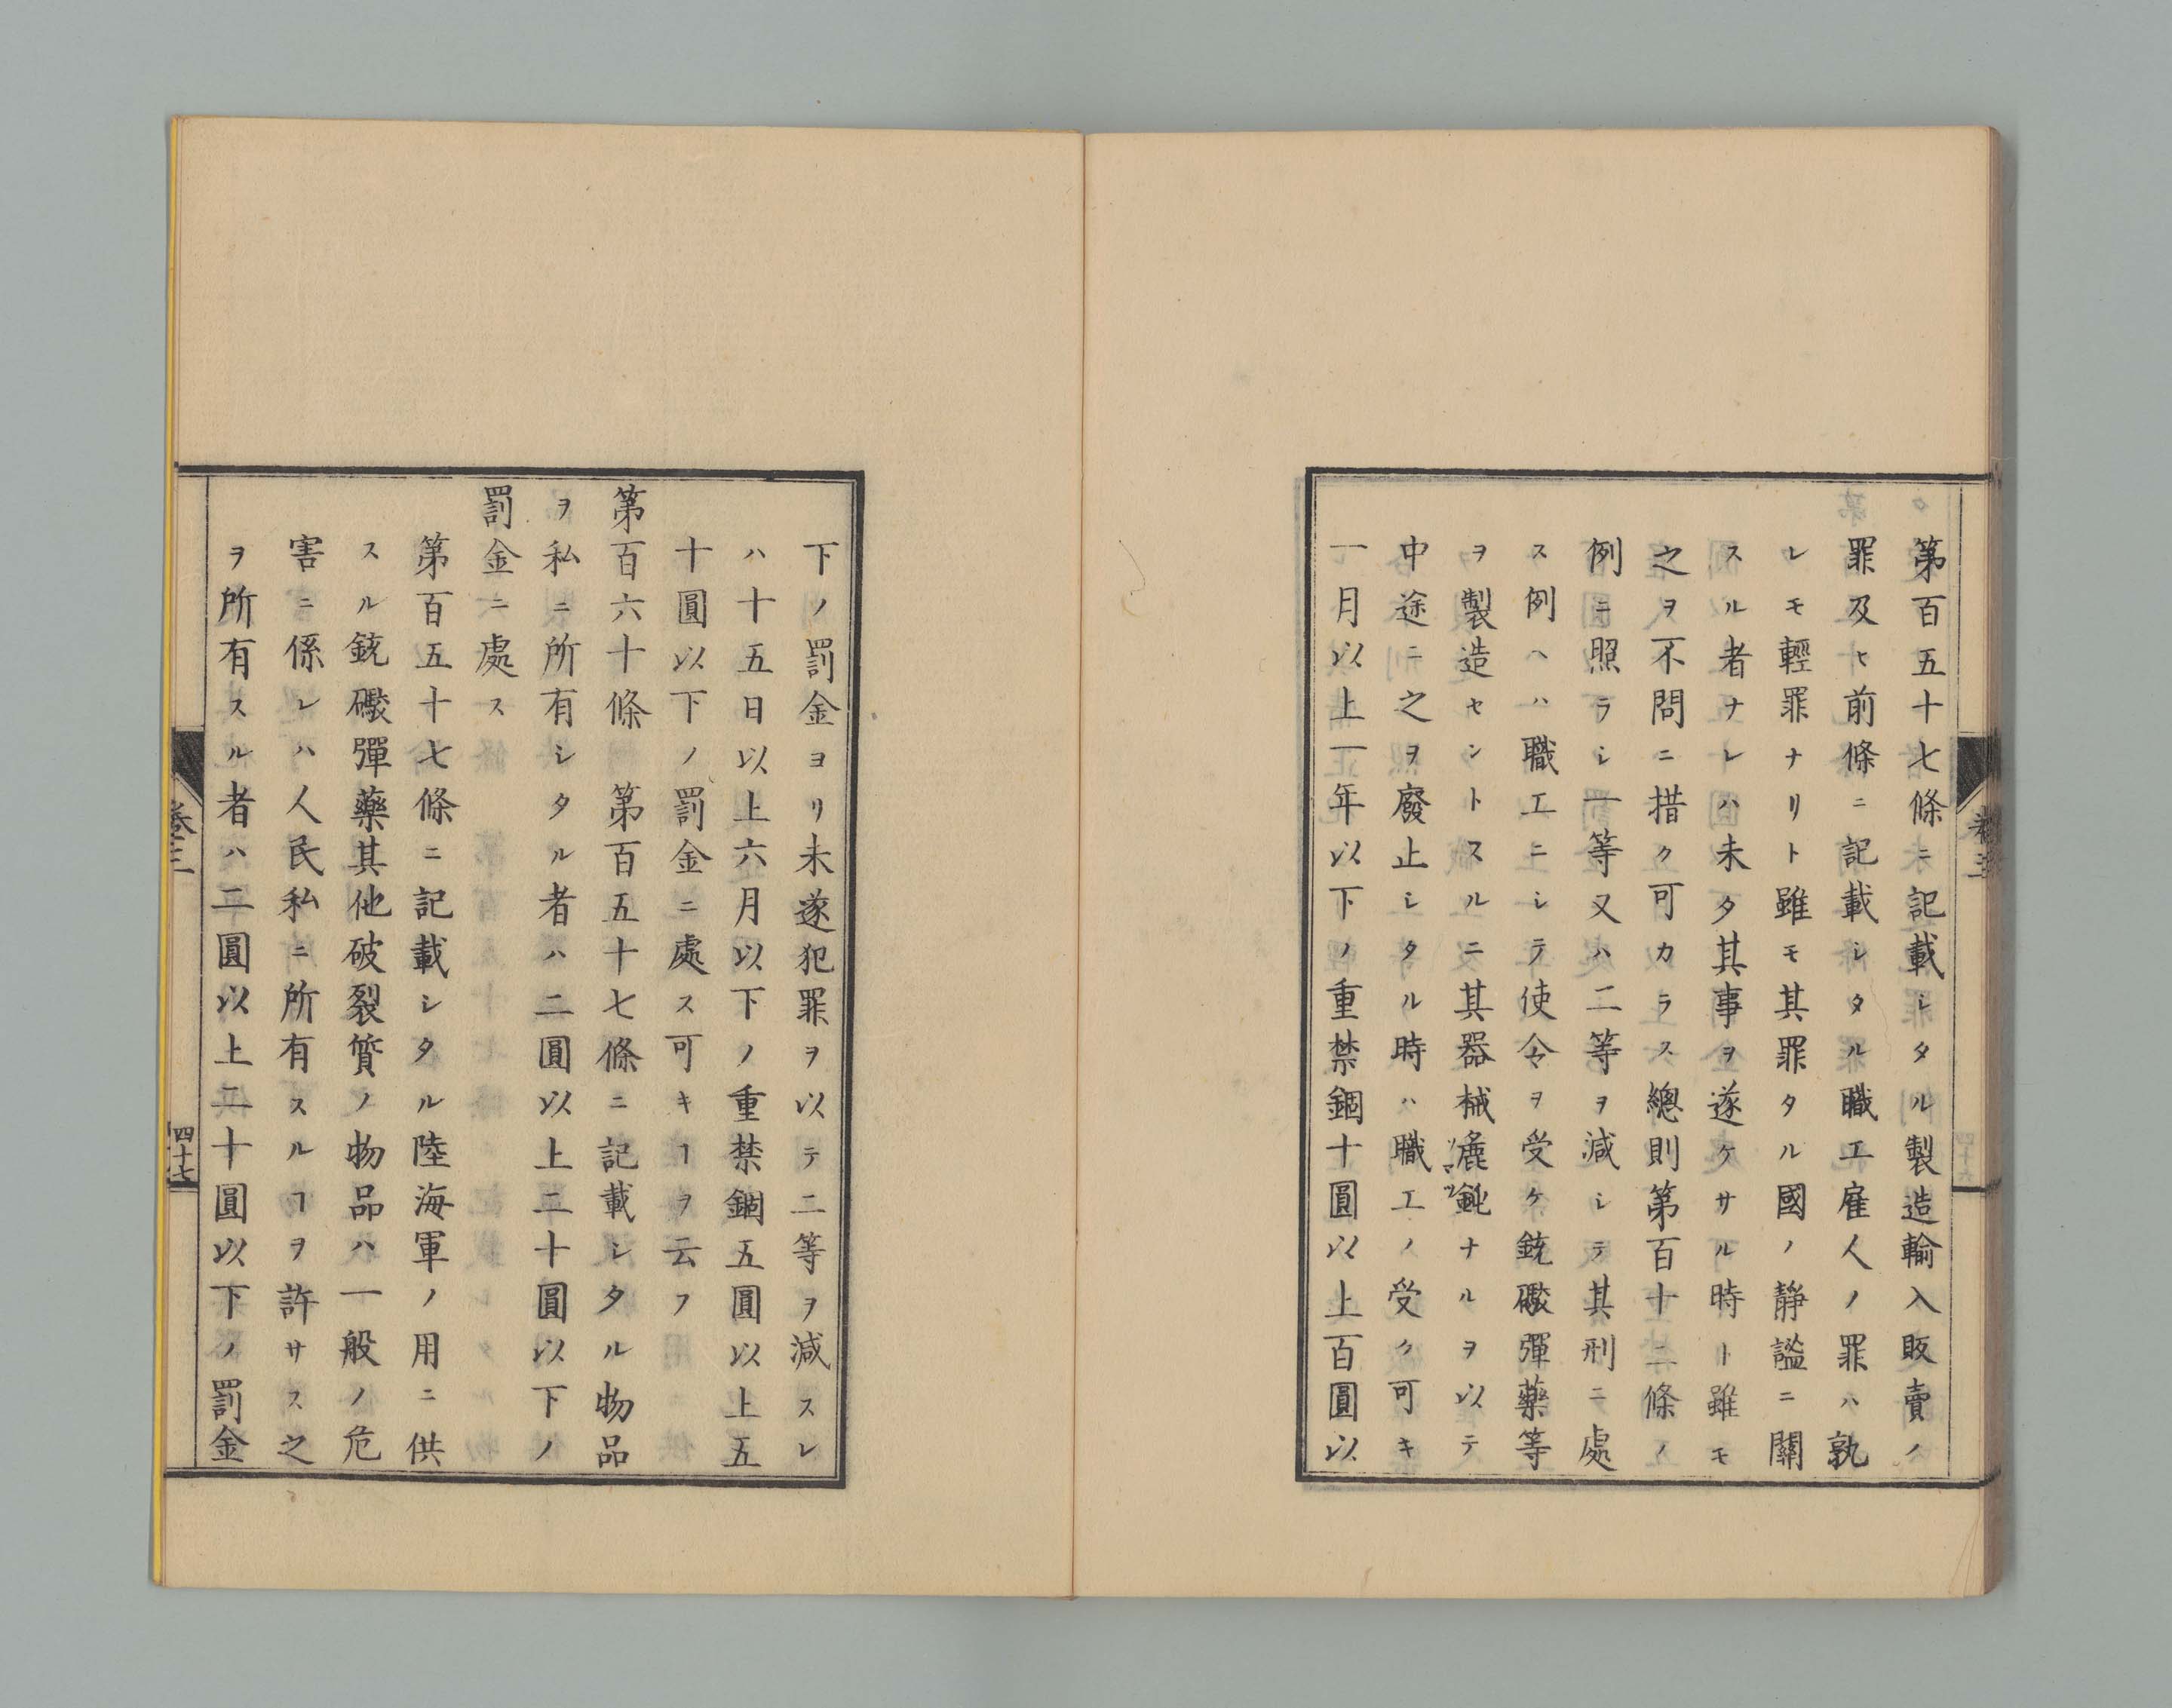 第百五十七條ニ記載シタル製造輸入販賣ノ
罪及ヒ前條ニ記載シタル職工雇人ノ罪ハ孰
レモ輕罪ナリト雖モ其罪タル國ノ靜謐ニ關
スル者ナレハ未タ其事ヲ遂ケサル時ト雖モ
之ヲ不問ニ措ク可カラス總則第百十二條ノ
例ニ照ラシ一等又ハ二等ヲ減シテ其刑ニ處
ス例ヘハ職工ニシテ使令ヲ受ケ銃礮彈藥等
ヲ製造セントスルニ其器械麁鈍ナルヲ以テ
中途ニ之ヲ廢止シタル時ハ職工ノ受ク可キ
一月以上一年以下ノ重禁錮十圓以上百圓以
下ノ罰金ヨリ未遂犯罪ヲ以テ二等ヲ減スレ
ハ十五日以上六月以下ノ重禁錮五圓以上五
十圓以下ノ罰金ニ處ス可キヿヲ云フ
第百六十條 第百五十七條ニ記載シタル物品
ヲ私ニ所有シタル者ハ二圓以上二十圓以下ノ
罰金ニ處ス
第百五十七條ニ記載シタル陸海軍ノ用ニ供
スル銃礮彈藥其他破裂質ノ物品ハ一般ノ危
害ニ係レハ人民私ニ所有スルヿヲ許サス之
ヲ所有スル者ハ二圓以上二十圓以下ノ罰金
卷三
四十七